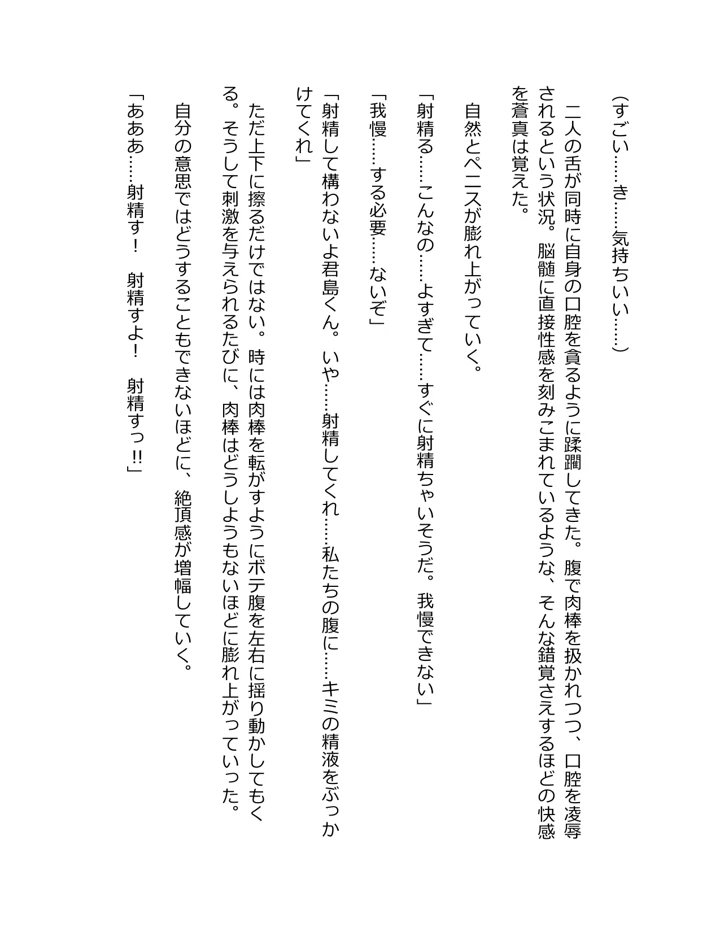 （すごい……き……気持ちいい……）
　二人の舌が同時に自身の口腔を貪るように蹂躙してきた。腹で肉棒を扱かれつつ、口腔を凌辱
されるという状況。脳髄に直接性感を刻みこまれているような、そんな錯覚さえするほどの快感
を蒼真は覚えた。
　自然とペニスが膨れ上がっていく。
「射精る……こんなの……よすぎて……すぐに射精ちゃいそうだ。我慢できない」
「我慢……する必要……ないぞ」
「射精して構わないよ君島くん。いや……射精してくれ……私たちの腹に……キミの精液をぶっか
けてくれ」
　ただ上下に擦るだけではない。時には肉棒を転がすようにボテ腹を左右に揺り動かしてもく
る。そうして刺激を与えられるたびに、肉棒はどうしようもないほどに膨れ上がっていった。
　自分の意思ではどうすることもできないほどに、絶頂感が増幅していく。
「あああ……射精す！　射精すよ！　射精すっ!!」